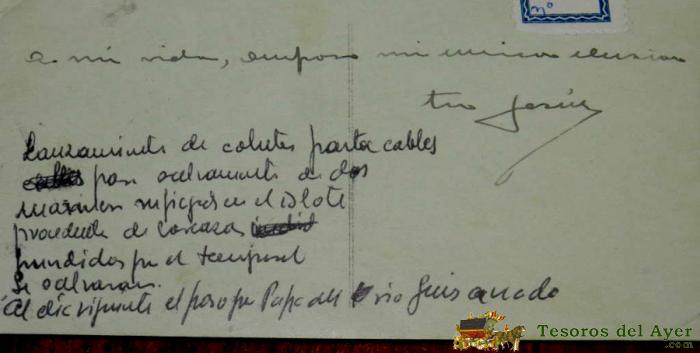 nº
a mi vida, mi unica ilusion
tuo Jesús
Lanzamiento de cohetes porta cables
para salvamento de dos
marineros refugiados en el islote
procedente de
hundidos por el temporal
Se salvaron.
Al dia siguiente el paso por Papa del rio Guisando
Tesoros del Ayer
.com